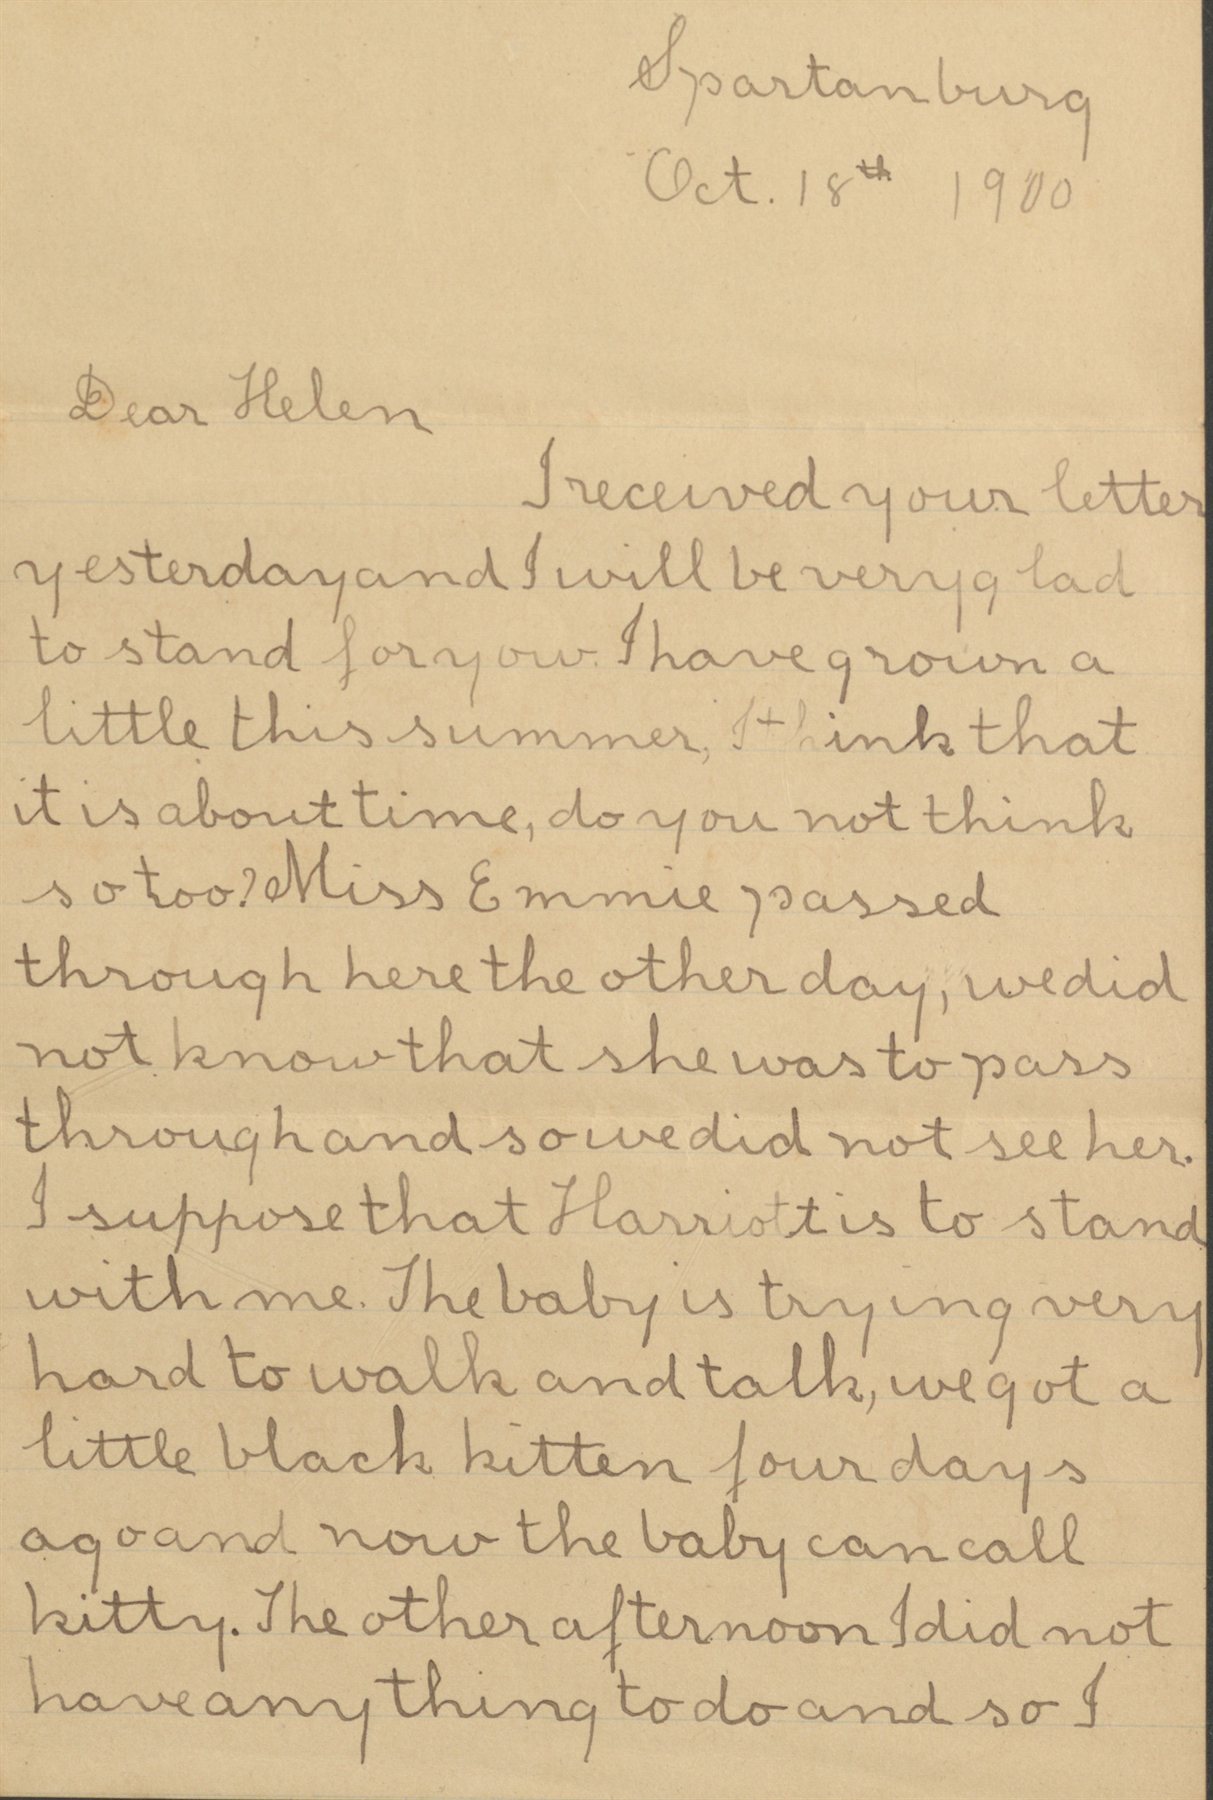 Spartanburg
Oct. 18th 1900
Dear Helen
I received your letter
yesterday and I will be very glad
to stand for you. I have grown a
little this summer, I think that
it is about time, do you not think
so too? Miss Emmie passed
through here the other day, we did
not know that she was to pass
through and so we did not see her.
I suppose that Harriott is to stand
with me. The baby is trying very
hard to walk and talk, we got a
little black kitten four days
ago and now the baby can call
kitty. The other afternoon I did not
have anything to do and so I